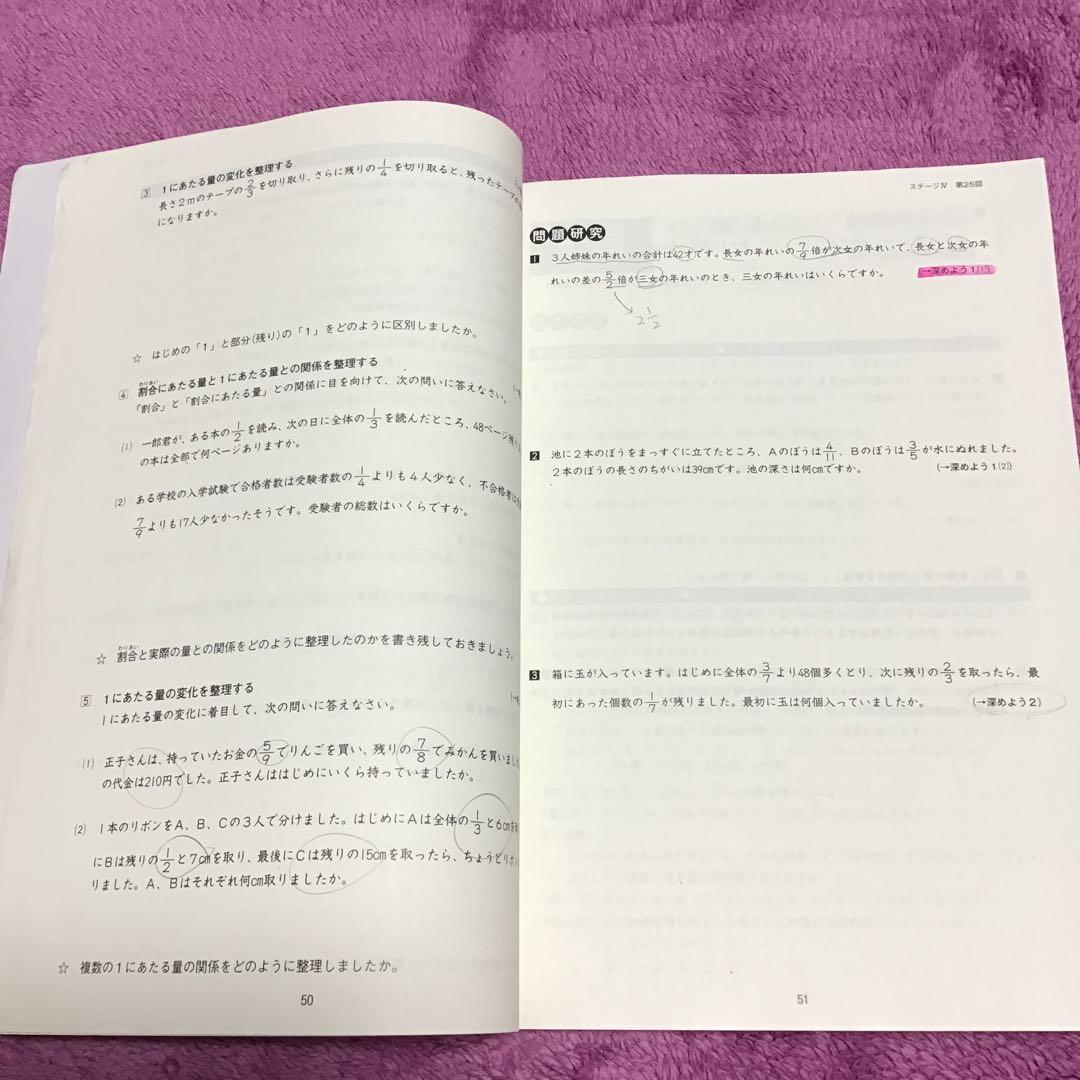 ③ 1にあたる量の変化を整理する
長さ2mのテープの2/3を切り取り、さらに残りの1/4を切り取ると、残ったテープ
になりますか。
☆ はじめの「1」と部分(残り)の「1」をどのように区別しましたか。
④ 割合にあたる量と1にあたる量との関係を整理する
わりあい
「割合」と「割合にあたる量」との関係に目を向けて、次の問いに答えなさい。
(1) 一郎君が、ある本の1/2を読み、次の日に全体の1/3を読んだところ、48ページ残り
の本は全部で何ページありますか。
(2) ある学校の入学試験で合格者数は受験者数の1/4よりも4人少なく、不合格者
7/9よりも17人少なかったそうです。受験者の総数はいくらですか。
☆ 割合と実際の量との関係をどのように整理したのかを書き残しておきましょう。
わりあい
⑤ 1にあたる量の変化を整理する
1にあたる量の変化に着目して、次の問いに答えなさい。
(1) 正子さんは、持っていたお金の5/9でりんごを買い、残りの7/8でみかんを買いまし
の代金は210円でした。正子さんははじめにいくら持っていましたか。
(2) 1本のリボンをA、B、Cの3人で分けました。はじめにAは全体の1/3と6cmを
にBは残りの1/2と7cmを取り、最後にCは残りの15cmを取ったら、ちょうどリボン
りました。A、Bはそれぞれ何cm取りましたか。
☆ 複数の1にあたる量の関係をどのように整理しましたか。
50
ステージⅣ 第25回
問題研究
1 3人姉妹の年れいの合計は42才です。長女の年れいの7/9倍が次女の年れいで、長女と次女の年
れいの差の5/2倍が三女の年れいのとき、三女の年れいはいくらですか。 (→深めよう1(1))
2 1/2
2 池に2本のぼうをまっすぐに立てたところ、Aのぼうは4/11、Bのぼうは3/5が水にぬれました。
2本のぼうの長さのちがいは39cmです。池の深さは何cmですか。 (→深めよう1(2))
3 箱に玉が入っています。はじめに全体の3/7より48個多くとり、次に残りの2/3を取ったら、最
初にあった個数の1/7が残りました。最初に玉は何個入っていましたか。 (→深めよう2)
51